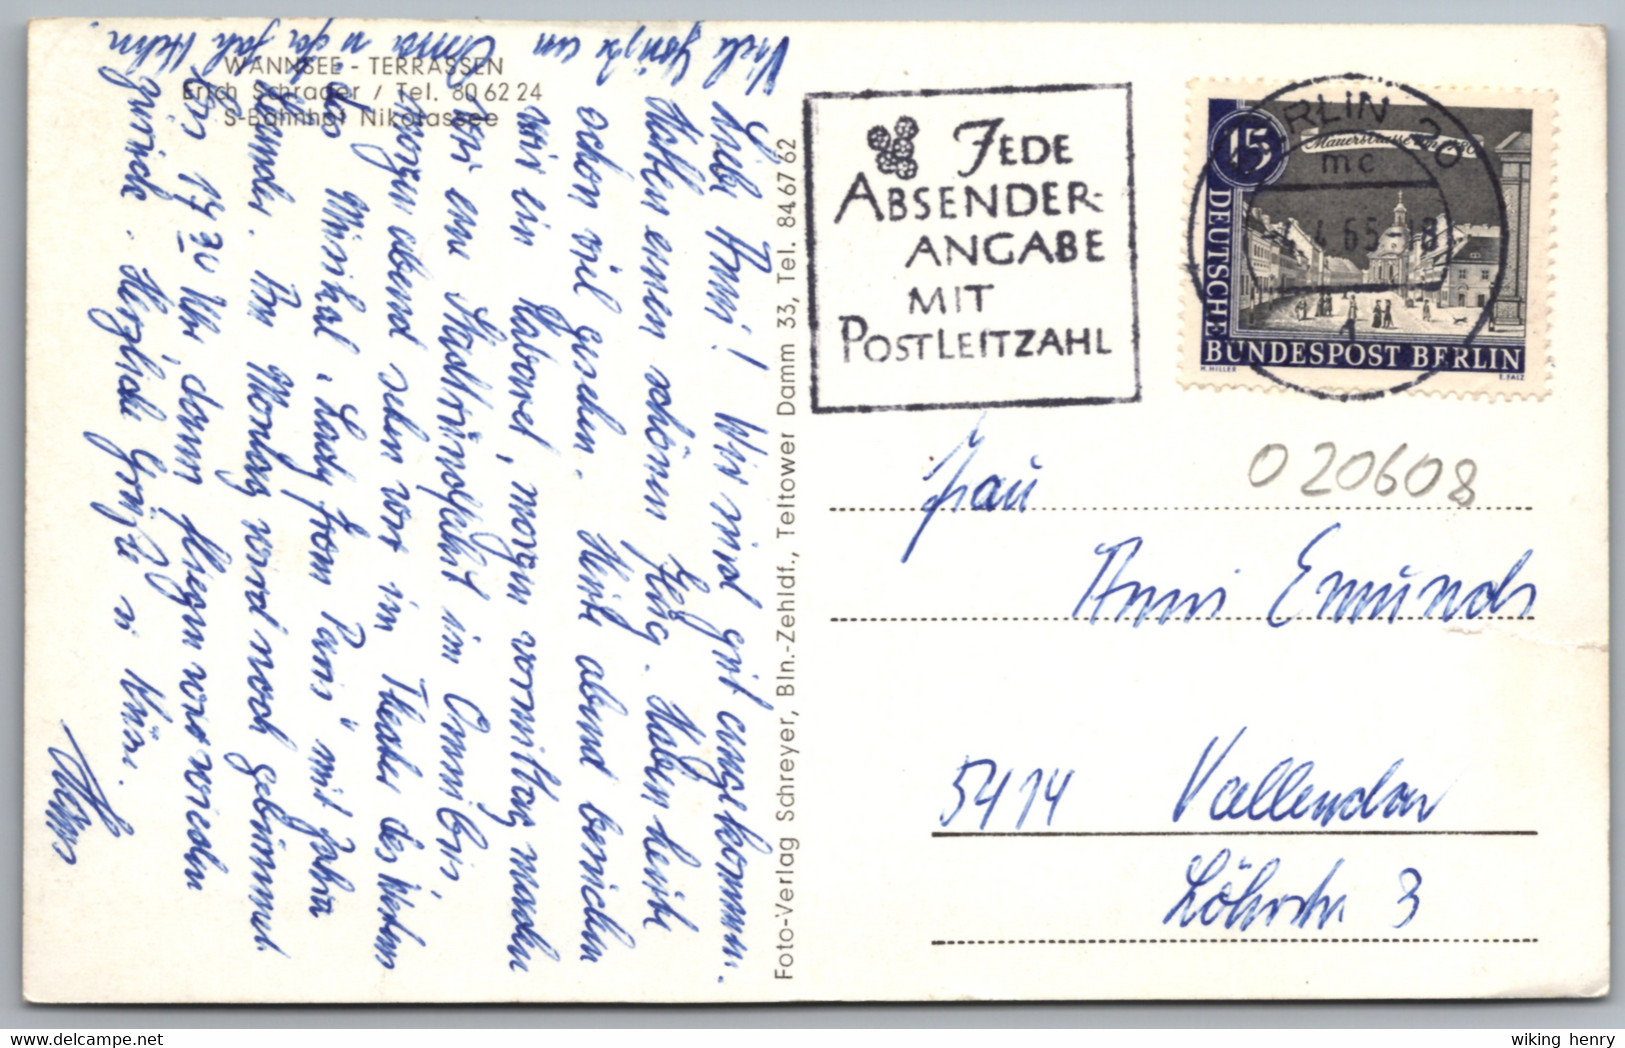 WANNSEE - TERRASSEN
Erich Schrader / Tel. 80 62 24
S-Bahnhof Nikolassee
Liebe Anni! Wir sind gut angekommen.
Haben einen schönen Flug. Haben heute
schon viel gesehn. Heute abend besuchen
wir ein Kabaret, morgen vormittag machen
wir eine Stadtrundfahrt im Omnibus,
morgen abend sehn wir im Theater des Westens
das Musikal „Lady from Paris" mit Zahra
Leander. Am Montag wird noch gebummelt
bis 17 30 Uhr, dann fliegen wir wieder
zurück. Herzliche Grüße u Küsse.
Hans
Viele Grüße an Oma u der Fah. Hehn.
Foto-Verlag Schreyer, Bln.-Zehldf., Teltower Damm 33, Tel. 84 67 62
JEDE
ABSENDER-
ANGABE
MIT
POSTLEITZAHL
BERLIN 20
mc
4.4.65-18
1
15
Mauerstrasse um 1780
DEUTSCHE
BUNDESPOST BERLIN
H.HILLER
E.FALZ
020608
Frau
Anni Emunds
5414 Vallendar
Löhrstr 3
wiking henry